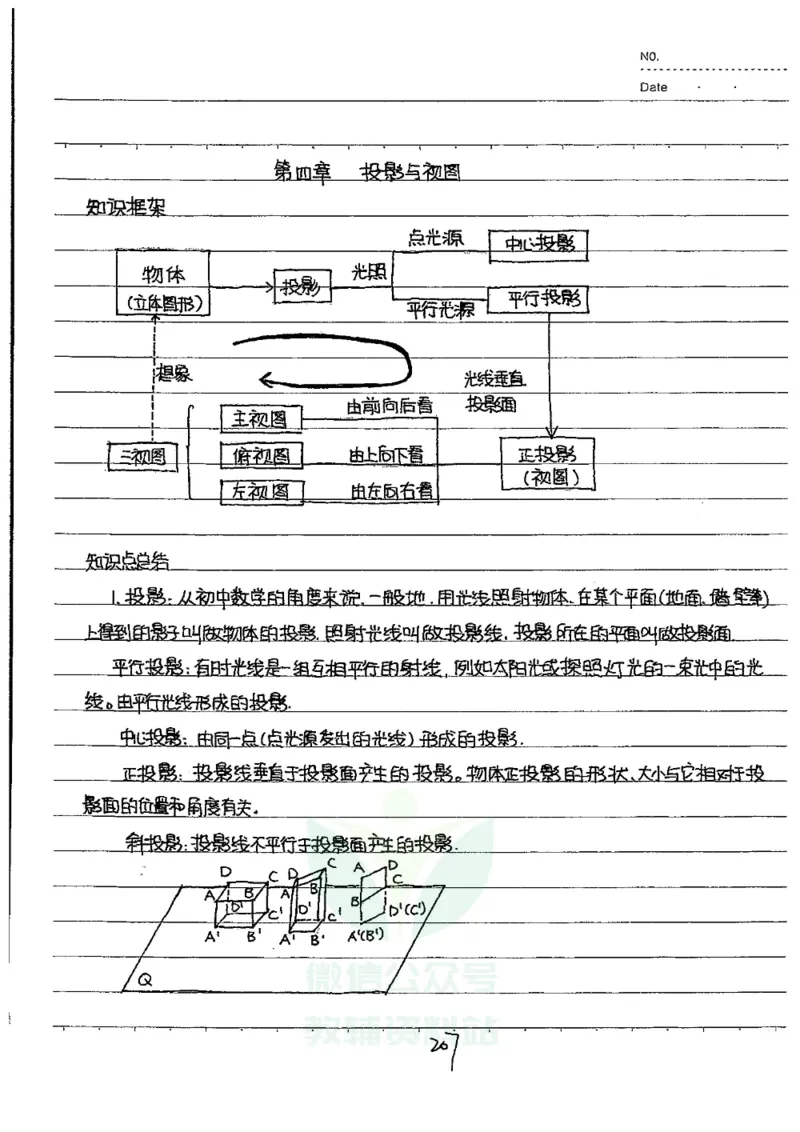 NO.
Date
第四章 投影与视图
知识框架
点光源 中心投影
物体 投影 光照
(立体图形) 平行光源 平行投影
想象 光线垂直
投影面
主视图 由前向后看
三视图 俯视图 由上向下看 正投影
(视图)
左视图 由左向右看
知识点总结
1、投影:从初中数学的角度来说,一般地,用光线照射物体,在某个平面(地面、墙壁等)
上得到的影子叫做物体的投影,照射光线叫做投影线,投影所在的平面叫做投影面.
平行投影:有时光线是一组互相平行的射线,例如太阳光或探照灯光的一束光中的光
线。由平行光线形成的投影.
中心投影:由同一点(点光源发出的光线)形成的投影.
正投影:投影线垂直于投影面产生的投影。物体正投影的形状、大小与它相对于投
影面的位置和角度有关.
斜投影:投影线不平行于投影面产生的投影.
D C D C A D
A B A B B C
D' C' D' C' D'(C')
A' B' A' B' A'(B')
Q
微信公众号
教辅资料站
207